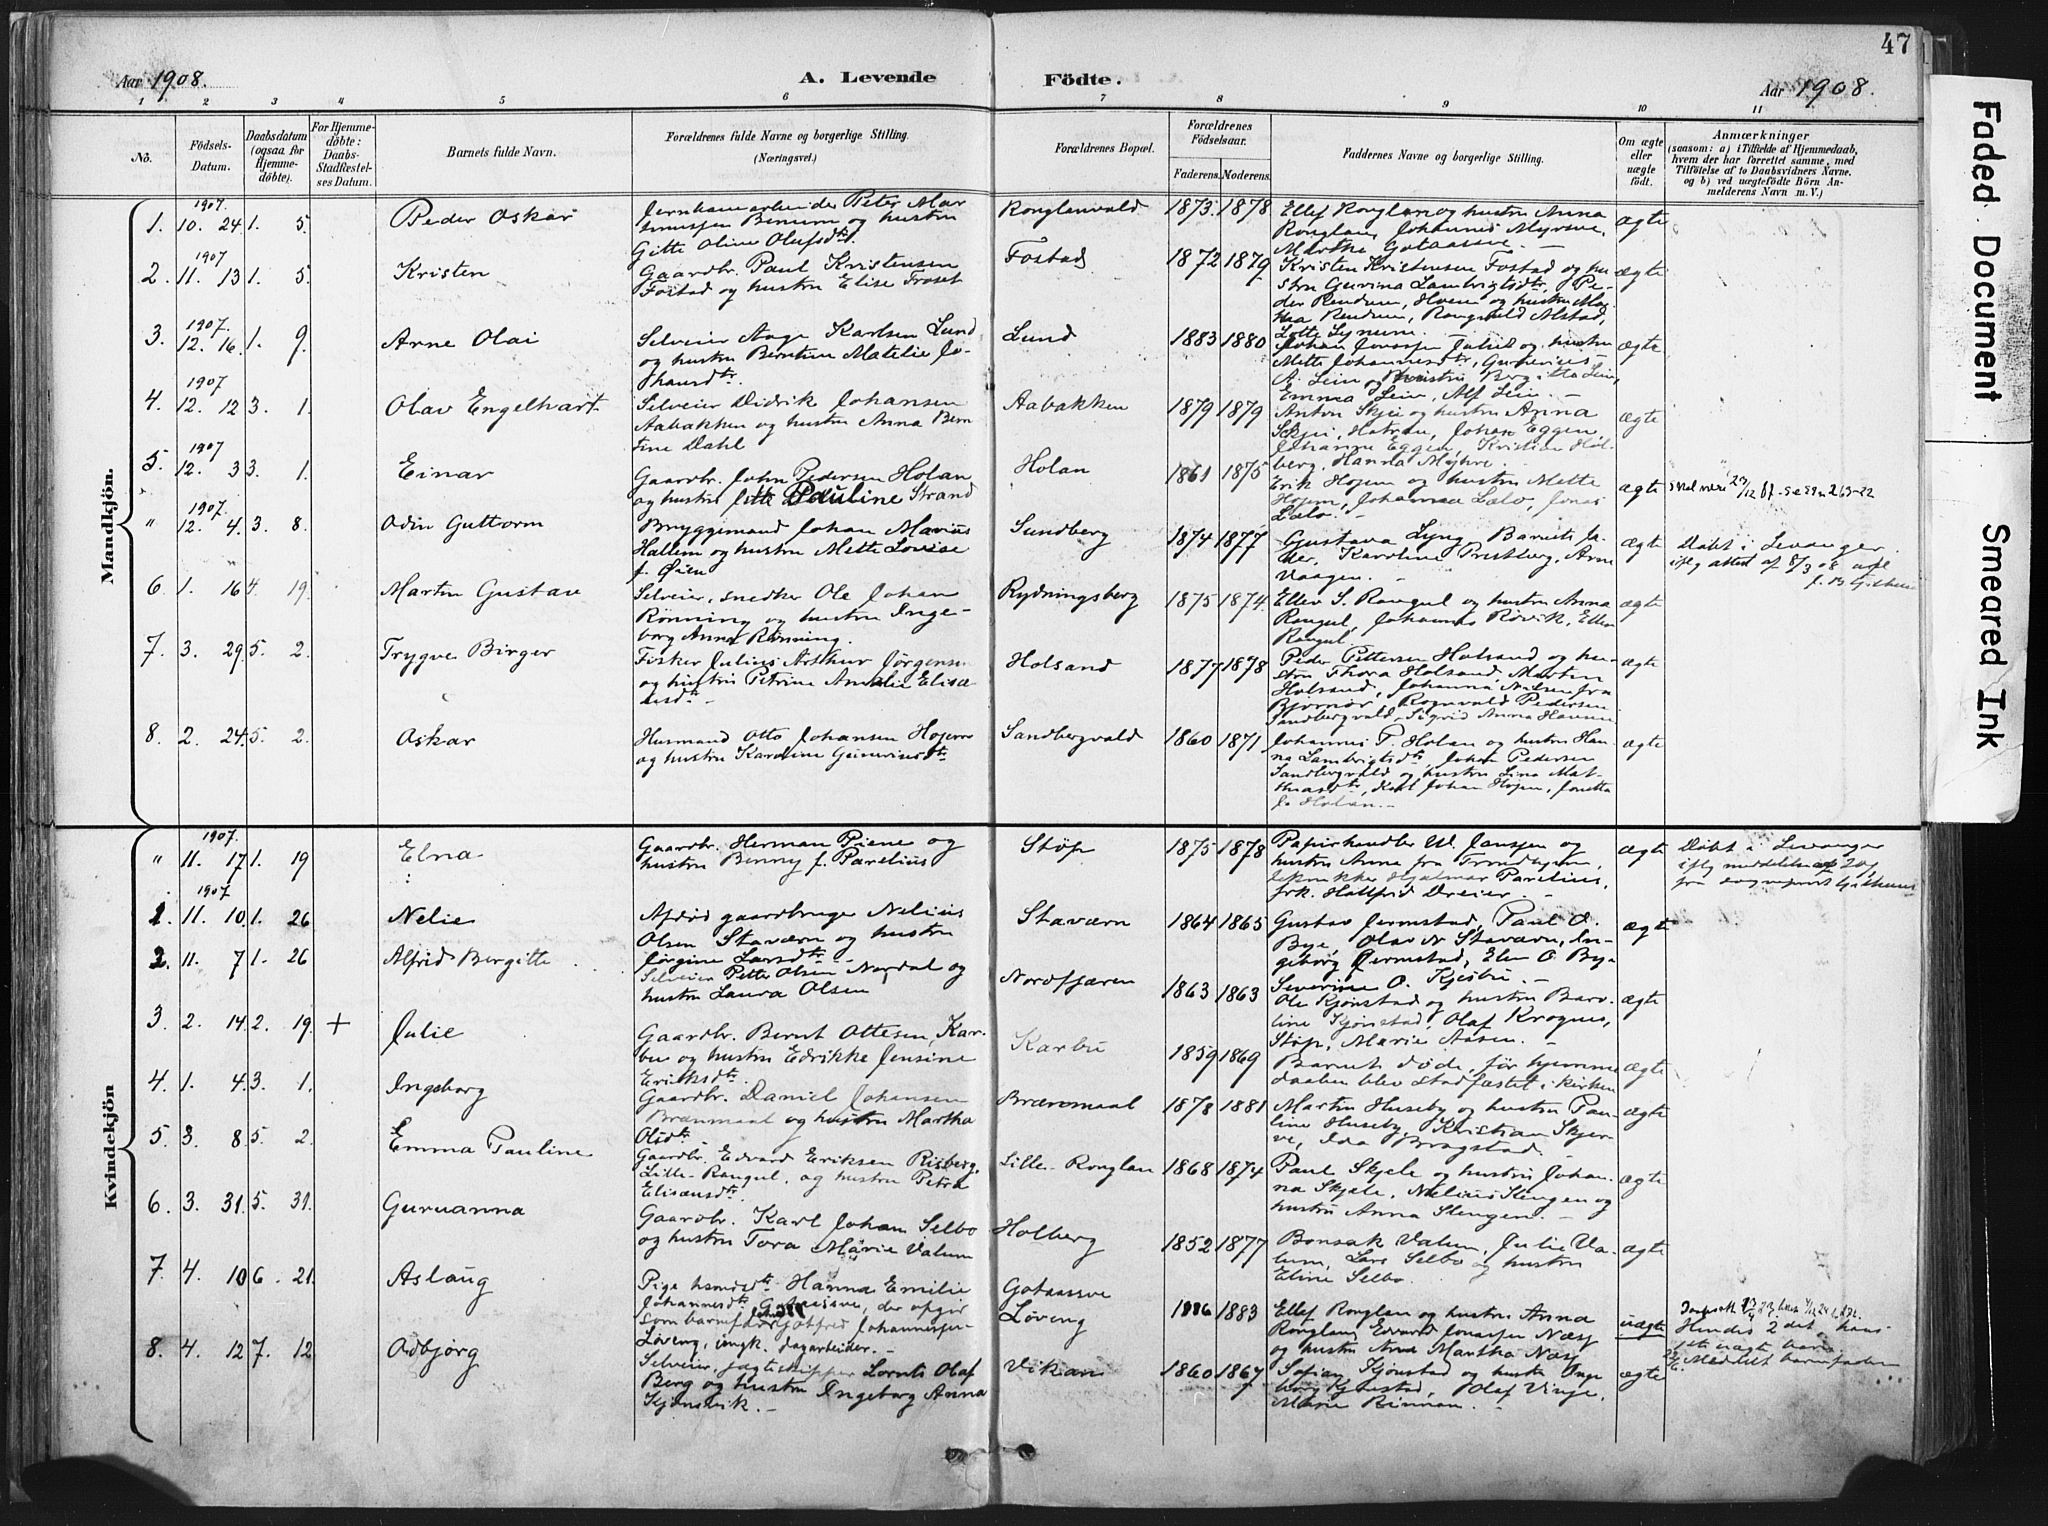 47
Aar 1908.
A. Levende Födte.
Aar 1908.
1 2 3 4 5 6 7 8 9 10 11
No.
Födsels-Datum.
Daabsdatum (ogsaa for Hjemme-döbte).
For Hjemme-döbte: Daabs-Stadfæstel-ses Datum.
Barnets fulde Navn.
Forældrenes fulde Navne og borgerlige Stilling. (Næringsvei.)
Forældrenes Bopæl.
Forældrenes Födselsaar.
Faderens. Moderens.
Faddernes Navne og borgerlige Stilling.
Om ægte eller uægte födt.
Anmærkninger
(saasom: a) i Tilfælde af Hjemmedaab, hvem der har forrettet samme, med Tilföielse af to Daabsvidners Navne. og b) ved uægtefödte Börn An-melderens Navn m. V.)
Mandkjön.
1. 1907 10. 24 1. 5. Peder Oskar
Jernbanearbeider Peter Mar
og hustru
Gitte Oline Olufsdtr.
Ronglanvald 1873. 1878
Ellef Ronglan og hustru Anna
Ronglan, Johannes Myrsve,
Martha Gotaassve. —
ægte
2. 1907 11. 13 1. 5. Kristen
Gaardbr. Paul Kristensen
Fostad og hustru Elise Froset
Fostad 1872 1879
Kristen Kristensen Fostad og hu
stru Gurina Lambrigtsdtr, Pe-
der Rendum, og hustru
Rendum, Rongvald Alstad,
Lotte
ægte
3. 1907. 12. 16. 1. 9. Arne Olai
Selveier Aage Karlsen Lund
og hustru Berntine Matelie Jo-
hansdtr.
Lund 1883 1880
Johan og hustru
Mette Johannesdtr,
A. Lein og hustru Bergitta Lein,
Emma Lein, Alf Lein. —
ægte
4. 1907 12. 12 3. 1. Olav Engelhart
Selveier Didrik Johansen
Aabakken og hustru Anna Bern
tine Dahl
Aabakken 1879 1879
Anton Skjei og hustru Anna
Skjei, Johan Eggen
Johanna Eggen, Kristian Hol-
berg, Hanna Myhre.
ægte
5. 1907 12. 3 3. 1. Einar
Gaardbr. John Pedersen Holan
og hustru Pauline Strand
Holan 1861 1875
Erik Hojem og hustru Mette
Hojem, Johanna Lalo, Jonas
Lalo. —
ægte
" 1907. 12. 4. 3. 8. Odin Guttorm
Bryggemand Johan Marius
Hallem og hustru Mette Lovise
f. Øien
Sundberg 1874 1877
Gustava Lyng, Barnets fa-
der, Karoline Arne
Vaagen. —
ægte
Døbt i Levanger
iflg attest af 8/3 08
6. 1. 16 4. 19. Martin Gustav
Selveier, snedker Ole Johan
Rønning og hustru Inge-
borg Anna Rønning.
Rydningsberg 1875 1874.
Ellev S. Rongul og hustru Anna
Rongul, Johannes Røvik, Ellen
Rongul
ægte
7. 3. 29. 5. 2. Trygve Birger
Fisker Julius Arthur Jørgensen
og hustru Petrine Amalie Elisæ
usdtr. —
Holsand 1877 1878
Peder Pettersen Holsand og hu-
stru Thora Holsand, Martin
Holsand, Johanna Nilsen fra
Bjørnør, Rognvald Pedersen
Sandbergvald, Sigrid Anna
ægte
8. 2. 24. 5. 2. Oskar
Husmand Otto Johansen Hojem
og hustru Karoline Guneriusdtr
Sandbergvald 1860 1871
Johannes P. Holan og hustru Han-
na Lambrigtsdtr, Johan Pedersen
Sandbergvald og hustru Lina Mat-
hiasdtr, Karl Johan Hojem, Jonetta
J. Holan. —
ægte
Kvindekjön
" 1907. 11. 17 1. 19 Elna
Gaardbr. Herman Piene og
hustru Benny f. Parelius
Støp 1875 1878
Papirhandler W. Janssen og
hustru Anna fra Trondhjem,
Hjalmar Parelius,
frk. Hallfrid Dreier. —
ægte
Døbt i Levanger
iflg meddelelse af 20/1
fra sogneprest
1. 1907 11. 10. 1. 26 Nelie
Afdød gaardbruger Nelius
Olsen Staværn og hustru
Jørgine Larsdtr. —
Staværn 1864 1865
Gustav Jermstad, Paul O.
Bye, Olav N Staværn, In-
geborg Jermstad, Elen O Bye
Severine O. Kjesbu. —
ægte
2. 11. 7 1. 26 Alfrid Bergitte
Selveier Petter Olsen Nordal og
hustru Laura Olsen
Nordfjæren 1863 1863
Ole Kjønstad og hustru
Kjønstad, Olaf Krognes,
Støp, Marie Aasen. —
ægte
3. 2. 14. 2. 19. + Julie
Gaardbr. Bernt Ottesen Kar-
bu og hustru Edrikke Jensine
Eriksdtr.
Karbu 1859 1869
Barnet døde, før hjemme
daaben blev stadfæstet i kirken
ægte
4. 1. 4. 3. 1. Ingeborg
Gaardbr. Daniel Johansen
Brænmaal og hustru Martha
Olsdtr. —
Brænmaal 1878 1881
Martin Huseby og hustru Pau-
line Huseby, Kristian Skjer-
ve, Ida Bragstad.
ægte
5. 3. 8 5. 2. Emma Pauline
Gaardbr. Edvard Eriksen Risberg,
Lille-Rongul, og hustru Petra
Elisæusdtr.
Lille-Ronglan 1868 1874
Paul Skjele og hustru Johan-
na Skjele, Nelius Slengen og
hustru Anna Slengen. —
ægte
6. 3. 31. 5. 31. Guruanna
Gaardbr. Karl Johan Selbo
og hustru Tora Marie Valum
Holberg 1852 1877
Bonsak Valum, Julie Va-
lum, Lars Selbo og hustru
Eline Selbo.
ægte
7. 4. 10 6. 21. Aslaug
Pige Hanna Emilie
Johannesdtr. Gotaassve, der opgir
som barnefader Gotfred Johannessen
Løveng, ungk. dagarbeider. —
Gotaassve
Løveng 1886 1883
Ellef Ronglan og hustru Anna
Ronglan, Edvard Jonassen Næss
og hustru Martha Næss
uægte
Hendes 2det, hans
1ste uægte barn.
Meddelt barnefaderen
8. 4. 12 7. 12 Odbjørg
Selveier, Lornts Olaf
Berg og hustru Ingeborg Anna
Kjønsvik. —
Vikan 1860 1867
Sofian Kjønstad og hustru Inge
borg Kjønstad, Olaf Vinje,
Marie Rinnan. —
ægte
Faded Document
Smeared Ink